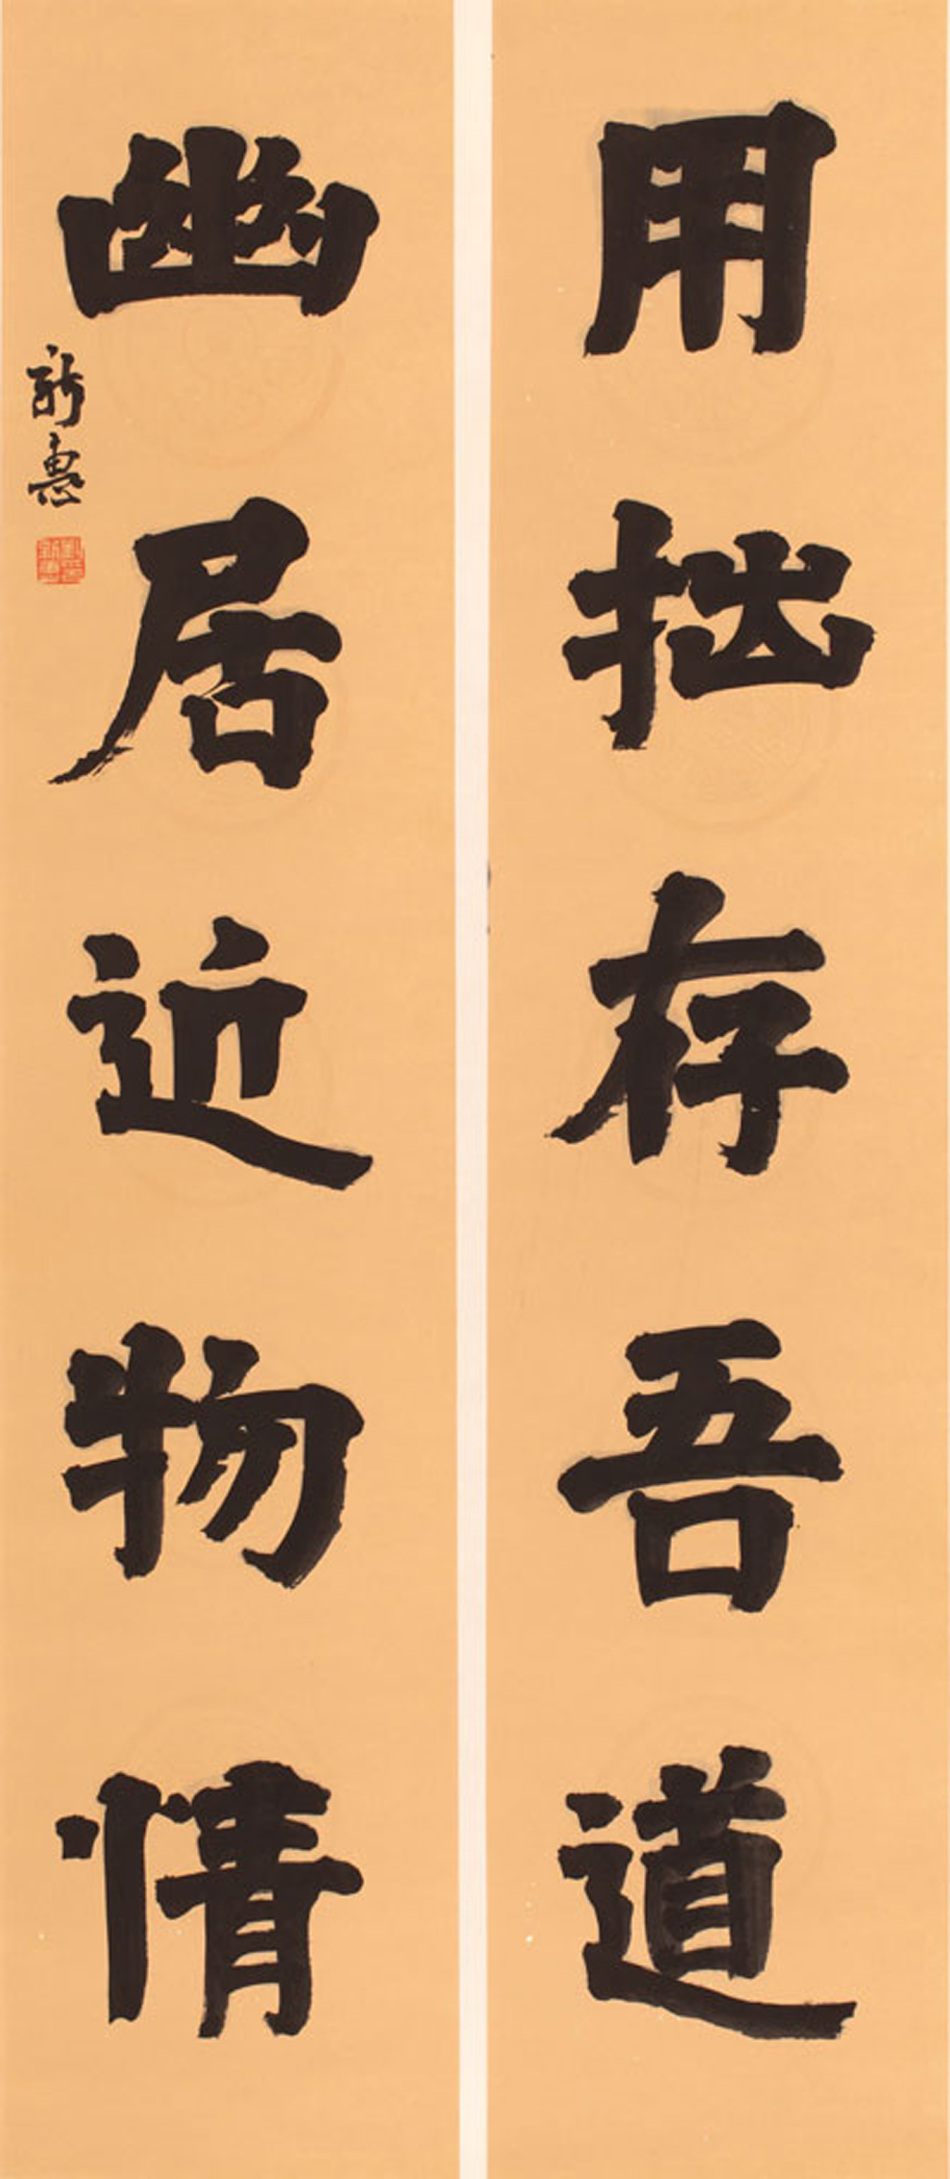 用拙存吾道
幽居近物情
新惠